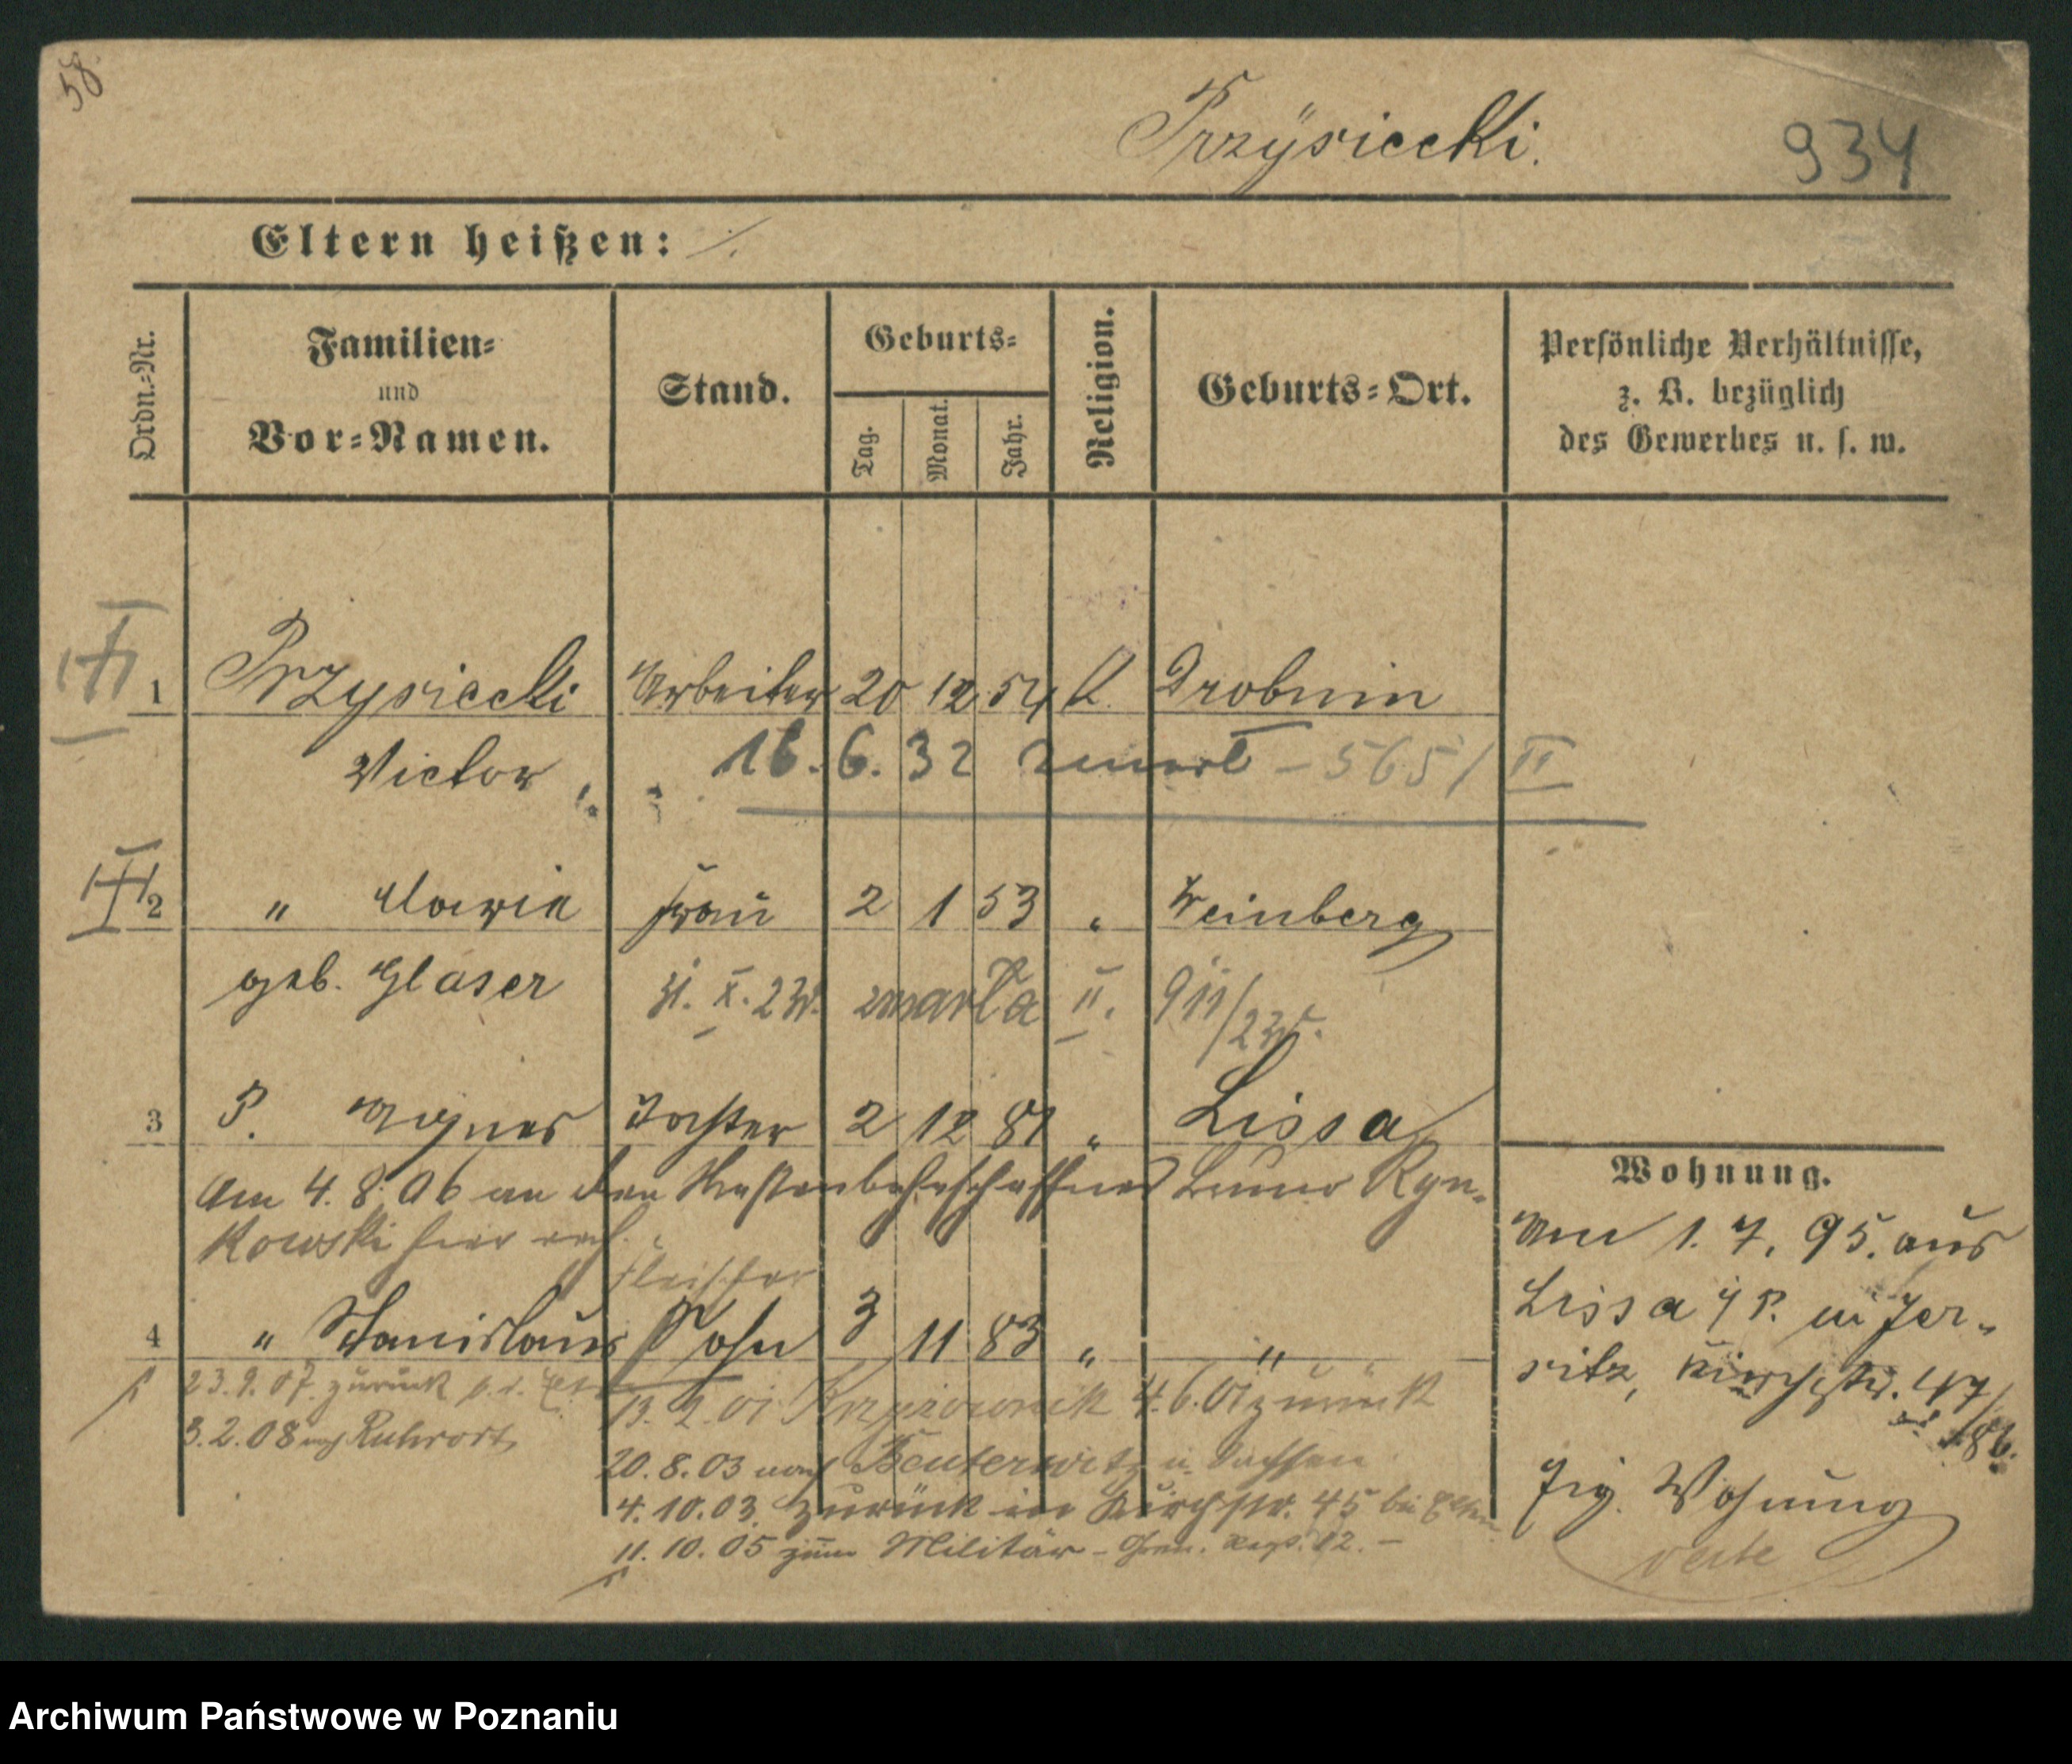 58.
Przÿsiecki.
934
Eltern heißen: ./.
Ordn.-Nr.
Familien-
und
Vor-Namen.
Stand.
Geburts-
Tag.
Monat.
Jahr.
Religion.
Geburts-Ort.
Persönliche Verhältnisse,
z. B. bezüglich
des Gewerbes u. s. w.
1 Przysiecki Arbeiter 20 12 54 k. Drobnin
Victor
16. 6. 32 zmarł - 565/II
2 " Maria Frau 2 1 53 " Weinberg
geb. Gläser
X. zmarła II. 911/
3 P. Agnes Tochter 2 12 81 " Lissa
Am 4. 8. 06 an den Bruno Ryn-
kowski hier verh.
Fleischer
4 " Stanislaus Sohn 3 11 83 " "
23. 9. 07. zurück
3. 2. 08 nach Ruhrort
13. 2. 01 Krzyżownik 4. 6. 01 zurück
20. 8. 03 nach i. Sachsen
4. 10. 03. zurück in Kirchstr. 45 bei Eltern
11. 10. 05 zum Militär - Gren. Regt. 12. -
Wohnung.
Am 1. 7. 95. aus
Lissa i/P. in Jer-
sitz, Kirchstr. 47/
86.
Frz. Wohnung
verte
Archiwum Państwowe w Poznaniu